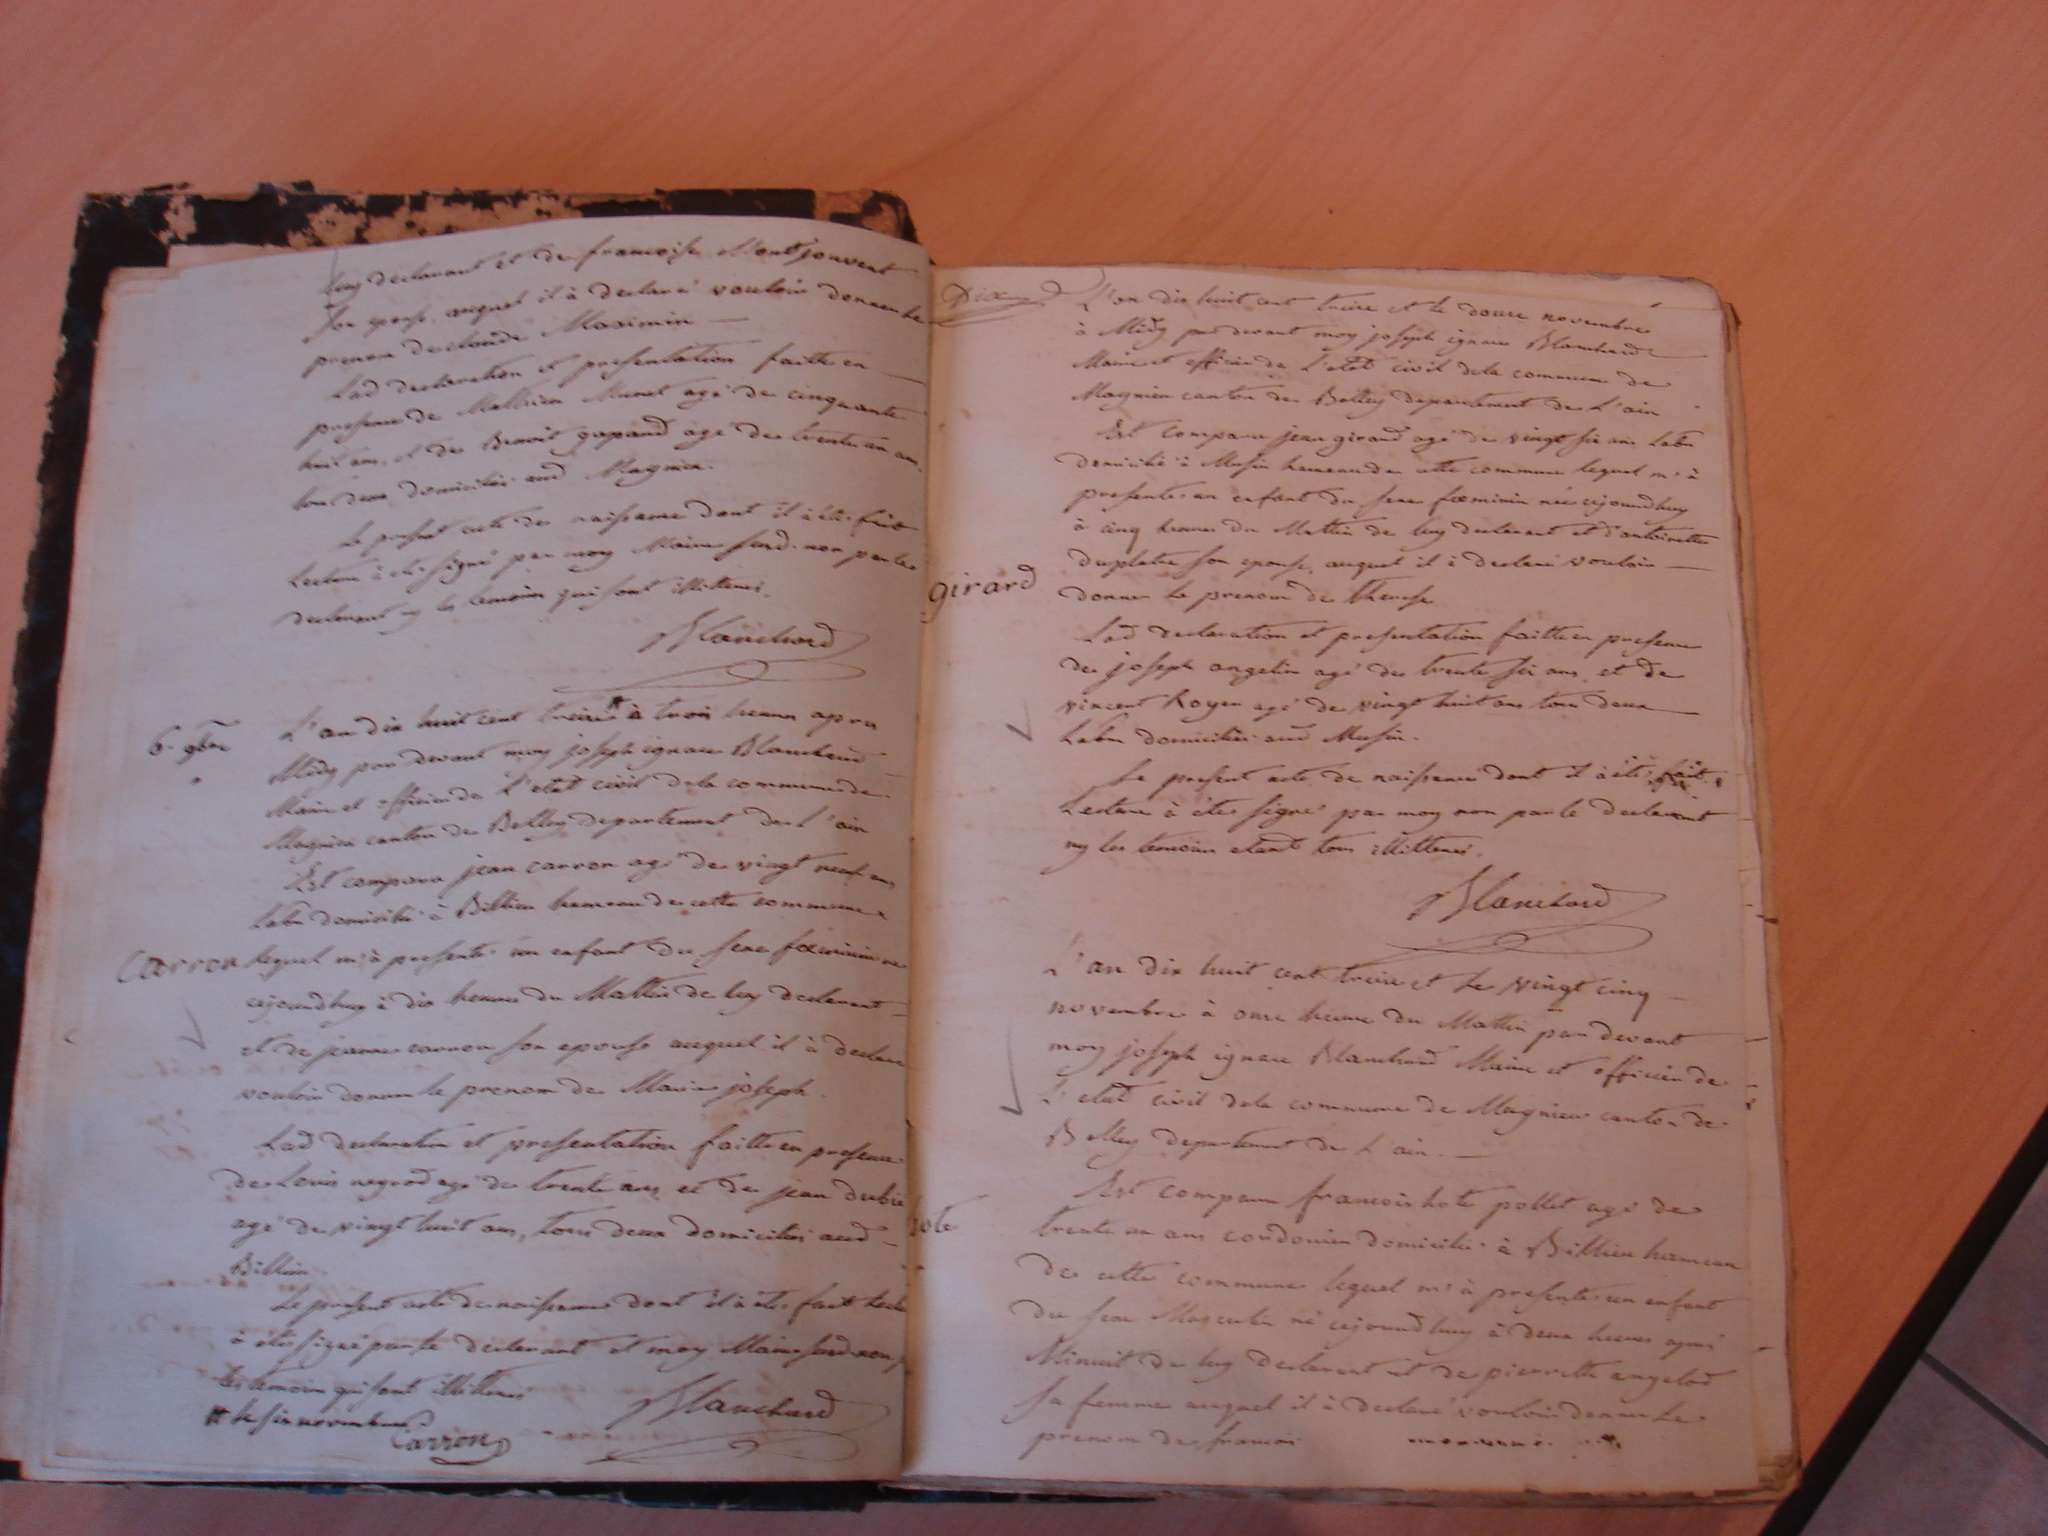 luy declarant et de francoise Montjouvent
son epouse, auquel il à declaré vouloir donner le
prenom de claude Maximin
Lad declaration et presentation faitte en
presence de Mathieu Munet agé de cinquante
huit ans, et de Benoit gapand agé de trente un ans
tous deux domiciliés aud Magnieu.
Le present acte de naissance dont il à été fait
Lecture à été signé par moy Maire susd. non par le
declarant ny les temoins qui sont illitterés.
Blanchard
6. 9bre
L'an dix huit cent treize # à trois heures apres
Midy par devant moy joseph ignace Blanchard
Maire et officier de L'etat civil de la commune de
Magnieu canton de Belley departement de L'ain
Est comparu jean carron agé de vingt neuf ans
Labr domicilié à Billieu hameau de cette commune
Carron
lequel m'à presenté un enfant du sexe foeminin né
cejourdhuy à dix heures du Mattin de luy declarant
et de jeanne carron son epouse auquel il à declaré
vouloir donner le prenom de Marie joseph.
Lad declaration et presentation faitte en presence
de Louis negrod agé de trente ans et de jean dubié
agé de vingt huit ans, tous deux domiciliés aud
Billieu.
Le present acte de naissance dont il à été fait lecte
à été signé par le declarant et moy Maire susd non
les temoins qui sont illitterés
# le six novembre
Blanchard
Carron
L'an dix huit cent treize et le douze novembre
à Midy par devant moy joseph ignace Blanchard
Maire et officier de L'etat civil de la commune de
Magnieu canton de Belley departement de L'ain
Est comparu jean girard agé de vingt six ans Labr
domicilié à Musin hameau de cette commune lequel m'à
presenté un enfant du sexe foeminin né cejourdhuy
à cinq heures du Mattin de luy declarant et d'antoinette
duplatre son epouse, auquel il à declaré vouloir
girard
donner le prenom de therese
Lad declaration et presentation faitte en presence
de joseph angelin agé de trente six ans, et de
vincent Royer agé de vingt huit ans tous deux
Labr domiciliés aud Musin.
Le present acte de naissance dont il à été fait
Lecture à été signé par moy non par le declarant
ny les temoins etant tous illitterés.
Blanchard
L'an dix huit cent treize et le vingt cinq
novembre à onze heures du Mattin par devant
moy joseph ignace Blanchard Maire et officier de
L'etat civil de la commune de Magnieu canton de
Belley departement de L'ain.
Est comparu francois hote pollet agé de
trente un ans cordonnier domicilié à Billieu hameau
de cette commune lequel m'à presenté un enfant
du sexe Masculin né cejourdhuy à deux heures apres
Minuit de luy declarant et de pierrette angelod
sa femme auquel il à declaré vouloir donner le
prenom de francois